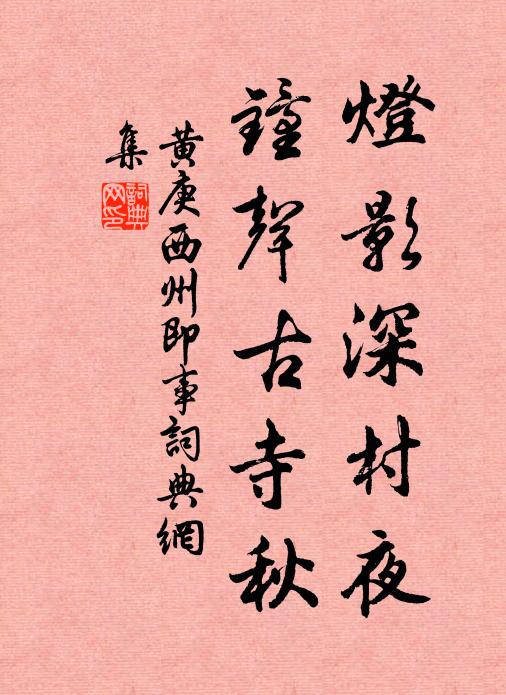 燈影深村夜
鐘聲古寺秋
黃庚西州即事詞典網
集
詞典
网印